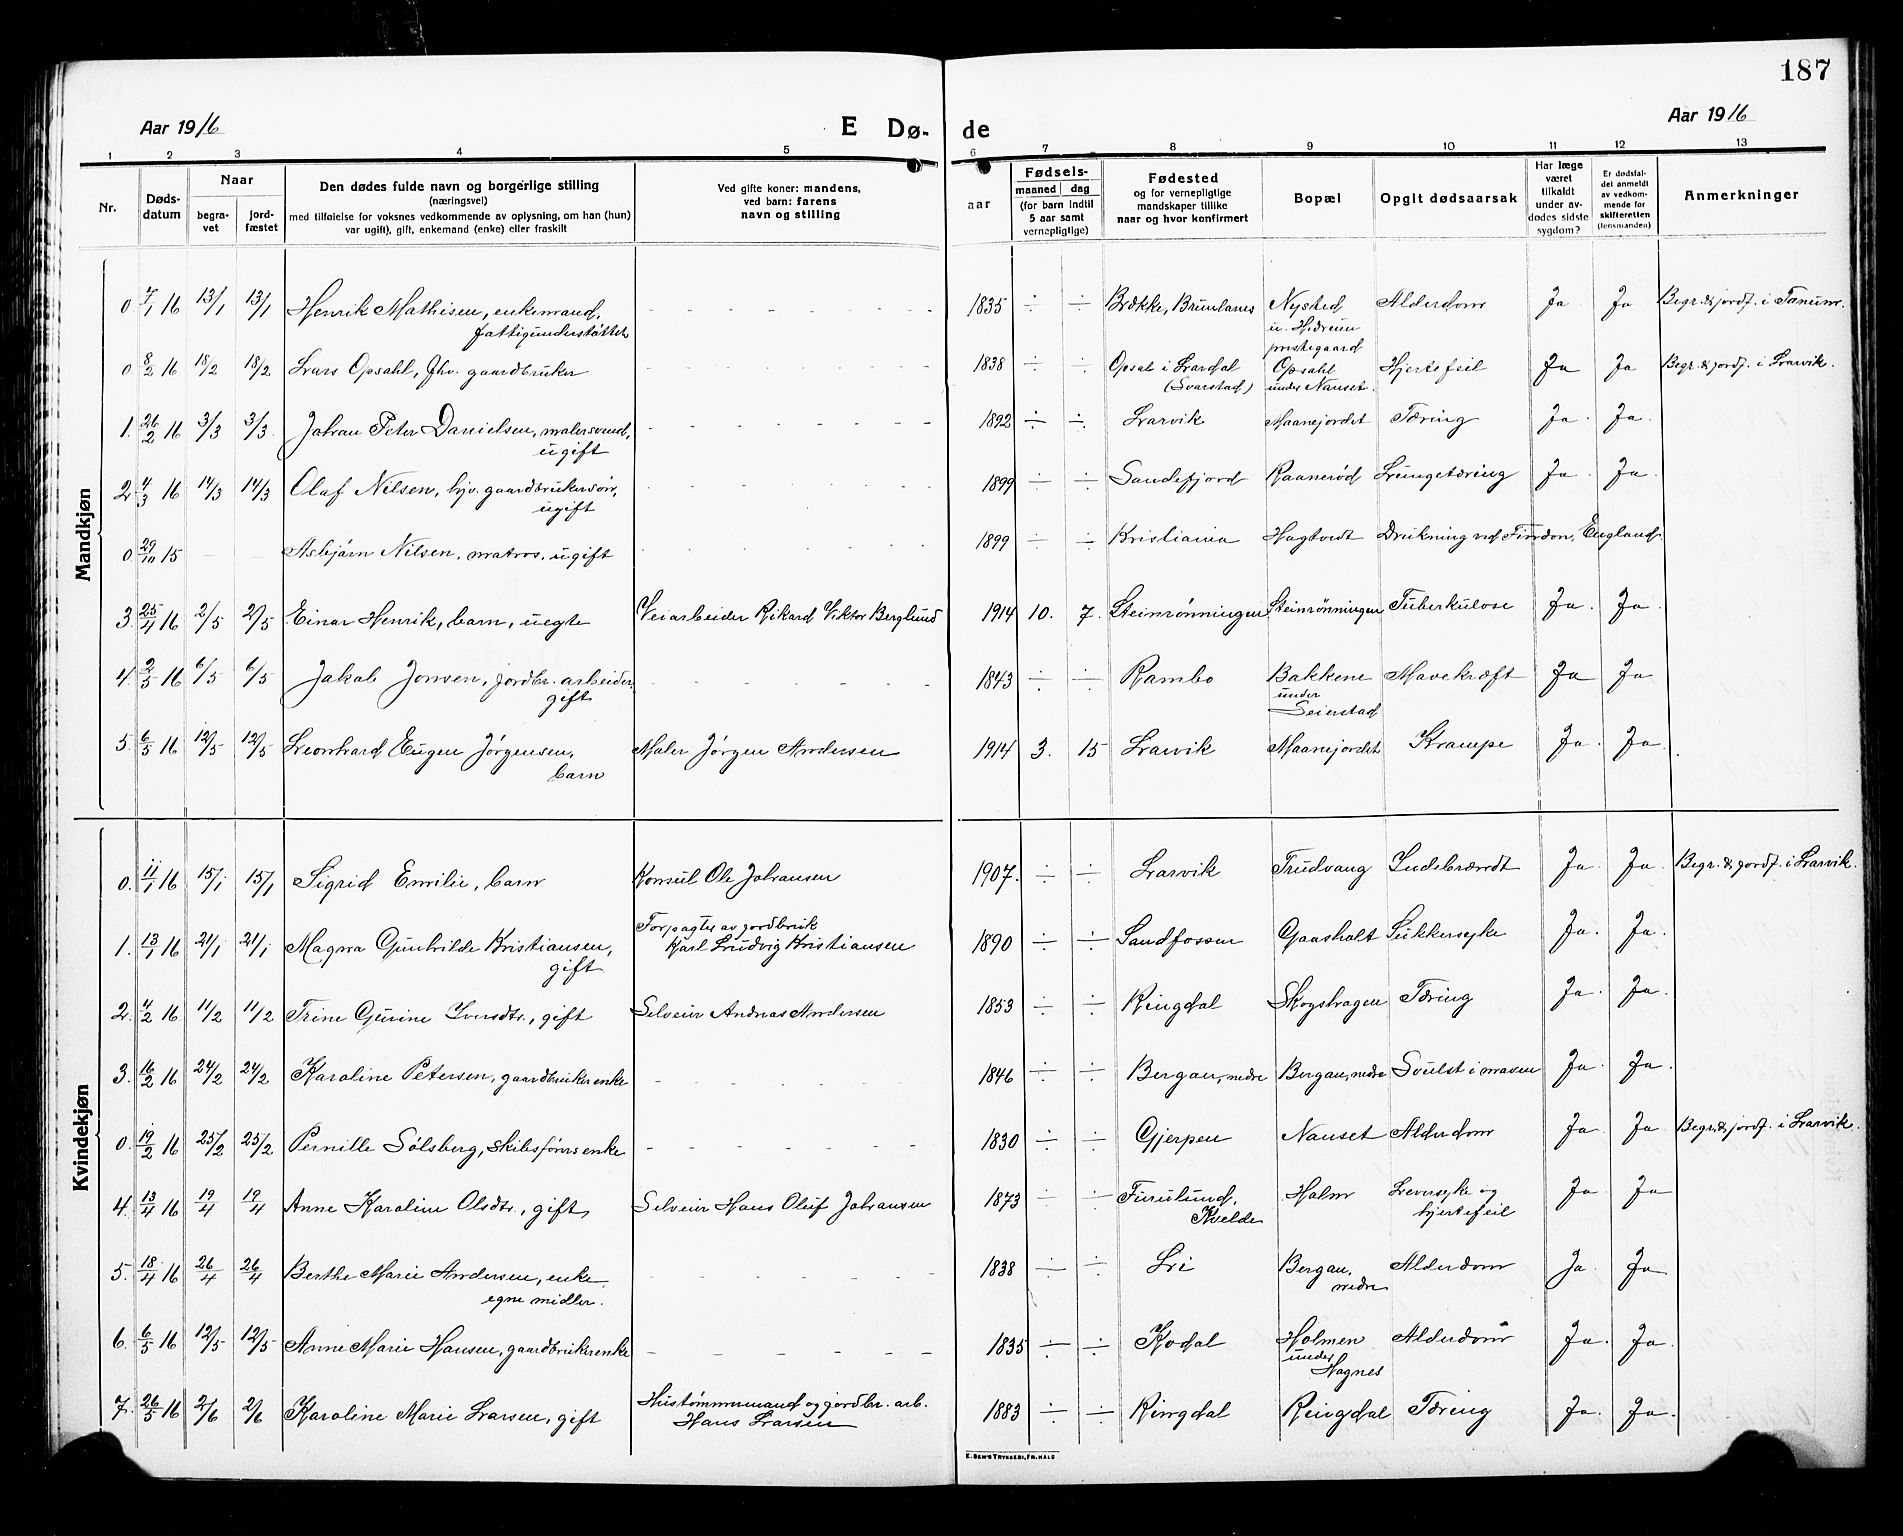 187
Aar 1916
E Dø-
de
Aar 1916
1 2 3 4 5 6 7 8 9 10 11 12 13
Nr.
Døds-
datum
Naar
begra-
vet
jord-
fæstet
Den dødes fulde navn og borgerlige stilling
(næringsvei)
med tilføielse for voksnes vedkommende av oplysning, om han (hun)
var ugift), gift, enkemand (enke) eller fraskilt
Ved gifte koner: mandens,
ved barn: farens
navn og stilling
aar
Fødsels-
maaned dag
(for barn indtil
5 aar samt
vernepligtige)
Fødested
og for vernepligtige
mandskaper tillike
naar og hvor konfirmert
Bopæl
Opgit dødsaarsak
Har læge
været
tilkaldt
under av-
dødes sidste
sygdom?
Er dødsfal-
det anmeldt
av vedkom-
mende for
skifteretten
(lensmanden)
Anmerkninger
Mandkjøn
0. 7/1 16 13/1 13/1 Henrik Mathisen, enkemand, - - - - - - - 1835 ÷ ÷ Brække, Brunlanes Nysted Alderdom Ja Ja Begr. & jordf. i Tanum.
fattigunderstøttet u. Hedrum
prestegaard
0. 8/2 16 18/2 18/2 Lars Opsahl, fhv. gaardbruker - - - - - - - 1838 ÷ ÷ Opsal i Lardal Opsahl Hjertefeil Ja Ja Begr. & jordf. i Larvik.
(Svarstad) under Nanset.
1. 26/2 16 3/3 3/3. Johan Peter Danielsen, malersvend, - - - - - - - 1892 ÷ ÷ Larvik Maanejordet Tæring Ja. Ja.
ugift
2. 4/3 16 14/3 14/3 Olaf Nilsen, hjv. gaardbrukersøn, - - - - - - - 1899 ÷ ÷ Sandefjord Raanerød Lungetæring Ja. Ja.
ugift
0. 29/10 15 - - Asbjørn Nilsen, matros, ugift - - - - - - - 1899 ÷ ÷ Kristiania Hagtvedt Drukning ved England.
3. 25/4 16 2/5 2/5 Einar Henrik, barn, uegte Veiarbeider Rikard Viktor Berglund 1914 10. 7. Steinrønningen Steinrønningen Tuberkulose Ja. Ja.
4. 2/5 16 6/5 6/5 Jakob Jonsen, jordbr. arbeider, - - - - - - - 1843 ÷ ÷ Rambo Bakkene Mavekræft Ja. Ja
gift under
Seierstad
5. 6/5 16 12/5 12/5 Leonhard Eugen Jørgensen, Maler Jørgen Andersen 1914 3. 15 Larvik Maanejordet Krampe Ja. Ja.
barn
Kvindekjøn
0. 11/1 16 15/1 15/1 Sigrid Emilie, barn Konsul Ole Johansen 1907. ÷ ÷ Larvik Trudvang Ja. Ja. Begr. & jordf. i Larvik.
Forpagter av jordbruk
1. 13/1 16 21/1 21/1 Magna Gunhilde Kristiansen, Karl Ludvig Kristiansen 1890 ÷ ÷ Sandfossen Gaasholt Sukkersyke Ja. Ja.
gift
2. 4/2 16 11/2 11/2 Trine Gurine Iversdtr., gift Selveier Andreas Andersen 1853 ÷ ÷ Ringdal Skogshagen Tæring Ja. Ja.
3. 16/2 16 24/2 24/2 Karoline Petersen, gaardbrukerenke - - - - - - 1846 ÷ ÷ Bergan, nedre Bergan, nedre Svulst i maven Ja. Ja.
0. 19/2 16 25/2 25/2 Pernille Sølsberg, skibsførersenke - - - - - - - 1830 ÷ ÷ Gjerpen Nanset Alderdom Ja. Ja. Begr. & jordf. i Larvik.
4. 13/4 16 19/4 19/4 Anne Karoline Olsdtr., gift Selveier Hans Oluf Johansen 1873 ÷ ÷ Furulund, Holm Leversyke og Ja. Ja
Kvelde hjertefeil
5. 18/4 16 26/4 26/4 Berthe Marie Andersen, enke - - - - - - 1838 ÷ ÷ Li Bergan, Alderdom Ja. Ja
egne midler. nedre
6. 6/5 16 12/5 12/5 Anne Marie Hansen, gaardbrukerenke - - - - - - 1835 ÷ ÷ Kodal Holmen Alderdom Ja. Ja.
under
Hagnes
7. 26/5 16 2/6 2/6 Karoline Marie Larsen, gift Hustømmermand og jordbr. arb. 1883 ÷ ÷ Ringdal Ringdal Tæring Ja. Ja.
Hans Larsen
E. SEM'S TRYKKERI, FR.HALD